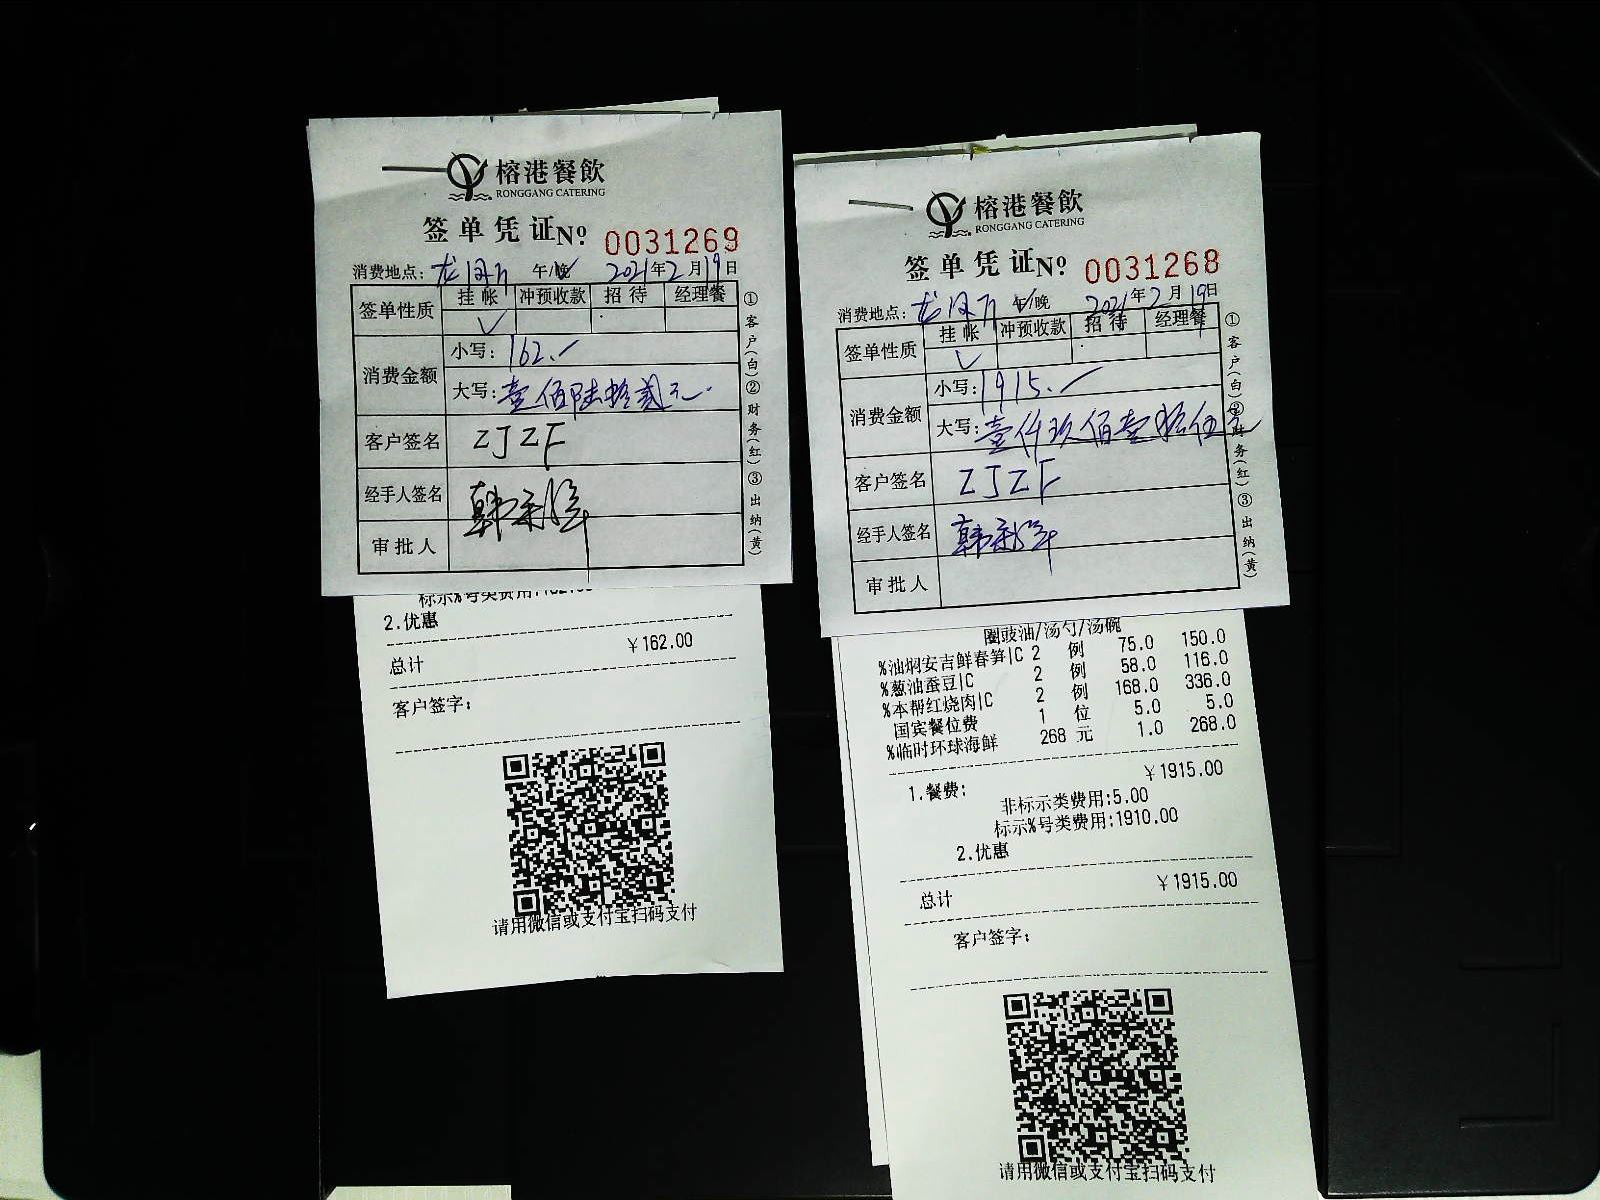 榕港餐飲
RONGGANG CATERING
签单凭证№ 0031269
消费地点：龙凤厅 午/晚 2021年2月19日
签单性质 挂帐 冲预收款 招待 经理餐
消费金额 小写：162.
大写：壹佰陆拾贰元
客户签名 ZJZF
经手人签名
审批人
①客户(白)②财务(红)③出纳(黄)
2.优惠
总计 ￥162.00
客户签字：
请用微信或支付宝扫码支付
榕港餐飲
RONGGANG CATERING
签单凭证№ 0031268
消费地点：龙凤厅 午/晚 2021年2月19日
签单性质 挂帐 冲预收款 招待 经理餐
消费金额 小写：1915.
大写：壹仟玖佰壹拾伍元
客户签名 ZJZF
经手人签名
审批人
①客户(白)②财务(红)③出纳(黄)
圈豉油/汤勺/汤碗
%油焖安吉鲜春笋|C 2 例 75.0 150.0
%葱油蚕豆|C 2 例 58.0 116.0
%本帮红烧肉|C 2 例 168.0 336.0
国宾餐位费 1 位 5.0 5.0
%临时环球海鲜 268 元 1.0 268.0
1.餐费： ￥1915.00
非标示类费用:5.00
标示%号类费用:1910.00
2.优惠
总计 ￥1915.00
客户签字：
请用微信或支付宝扫码支付